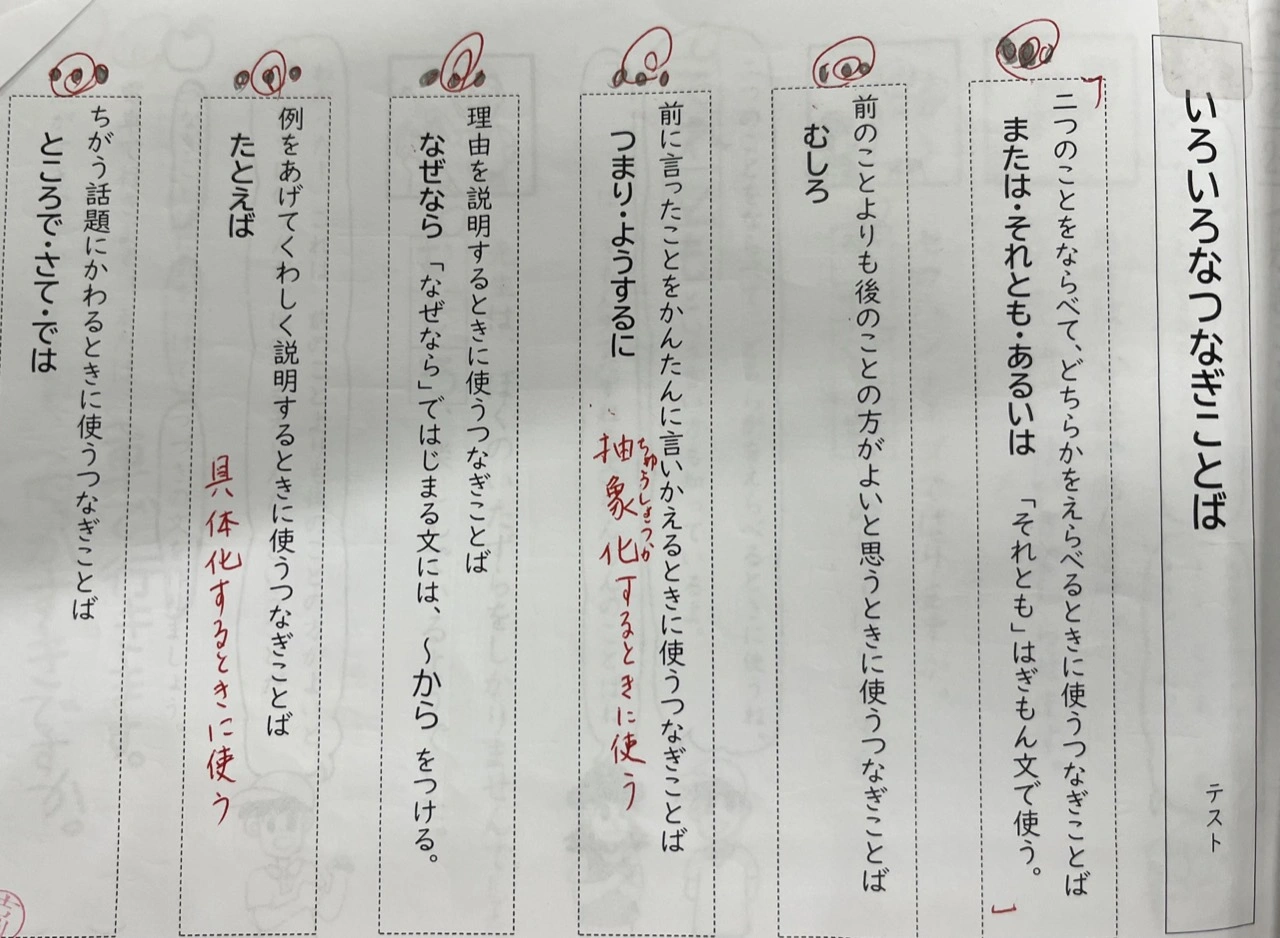 いろいろなつなぎことば
テスト
二つのことをならべて、どちらかをえらべるときに使うつなぎことば
または・それとも・あるいは 「それとも」はぎもん文で使う。
前のことよりも後のことの方がよいと思うときに使うつなぎことば
むしろ
前に言ったことをかんたんに言いかえるときに使うつなぎことば
つまり・ようするに
ちゅうしょうか
抽象化するときに使う
理由を説明するときに使うつなぎことば
なぜなら 「なぜなら」ではじまる文には、～から をつける。
例をあげてくわしく説明するときに使うつなぎことば
たとえば
具体化するときに使う
ちがう話題にかわるときに使うつなぎことば
ところで・さて・では